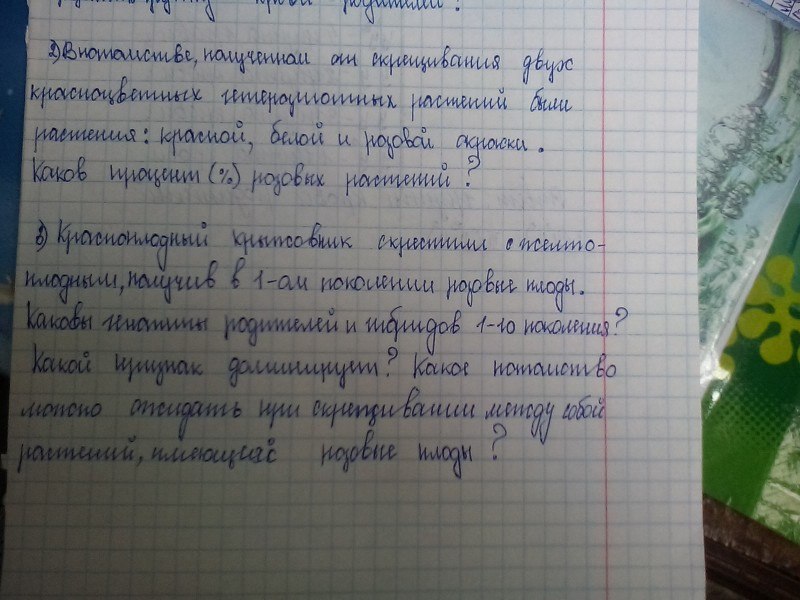 крови родителей?
2) В потомстве, полученном от скрещивания двух
красноцветных гетерозиготных растений были
растения: красной, белой и розовой окраски.
Каков процент (%) розовых растений?
3) Красноплодный крыжовник скрестили с желто-
плодным, получив в 1-ом поколении розовые плоды.
Каковы генотипы родителей и гибридов 1-го поколения?
Какой признак доминирует? Какое потомство
можно ожидать при скрещивании между собой
растений, имеющеас розовые плоды?